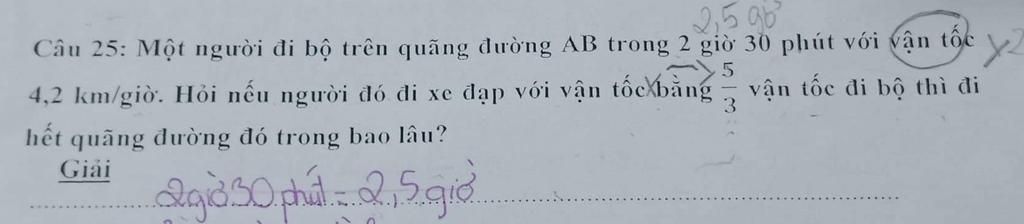 2,5 giờ
Câu 25: Một người đi bộ trên quãng đường AB trong 2 giờ 30 phút với vận tốc x2
4,2 km/giờ. Hỏi nếu người đó đi xe đạp với vận tốc bằng 5/3 vận tốc đi bộ thì đi
hết quãng đường đó trong bao lâu?
Giải
2giờ 30 phút = 2,5 giờ